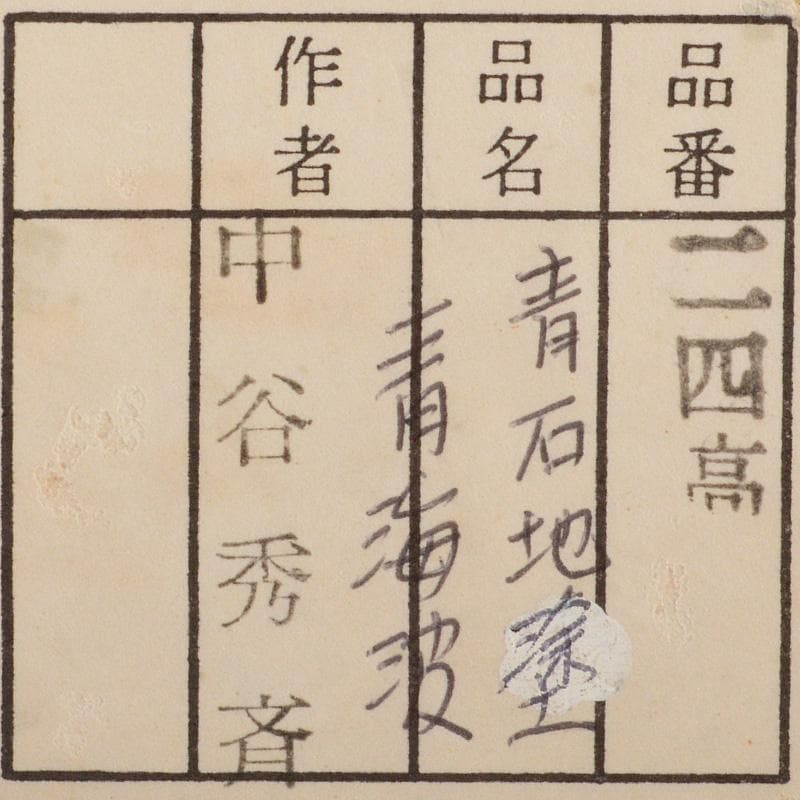 品番
二四高
品名
青石地塗
青海波
作者
中谷秀斉